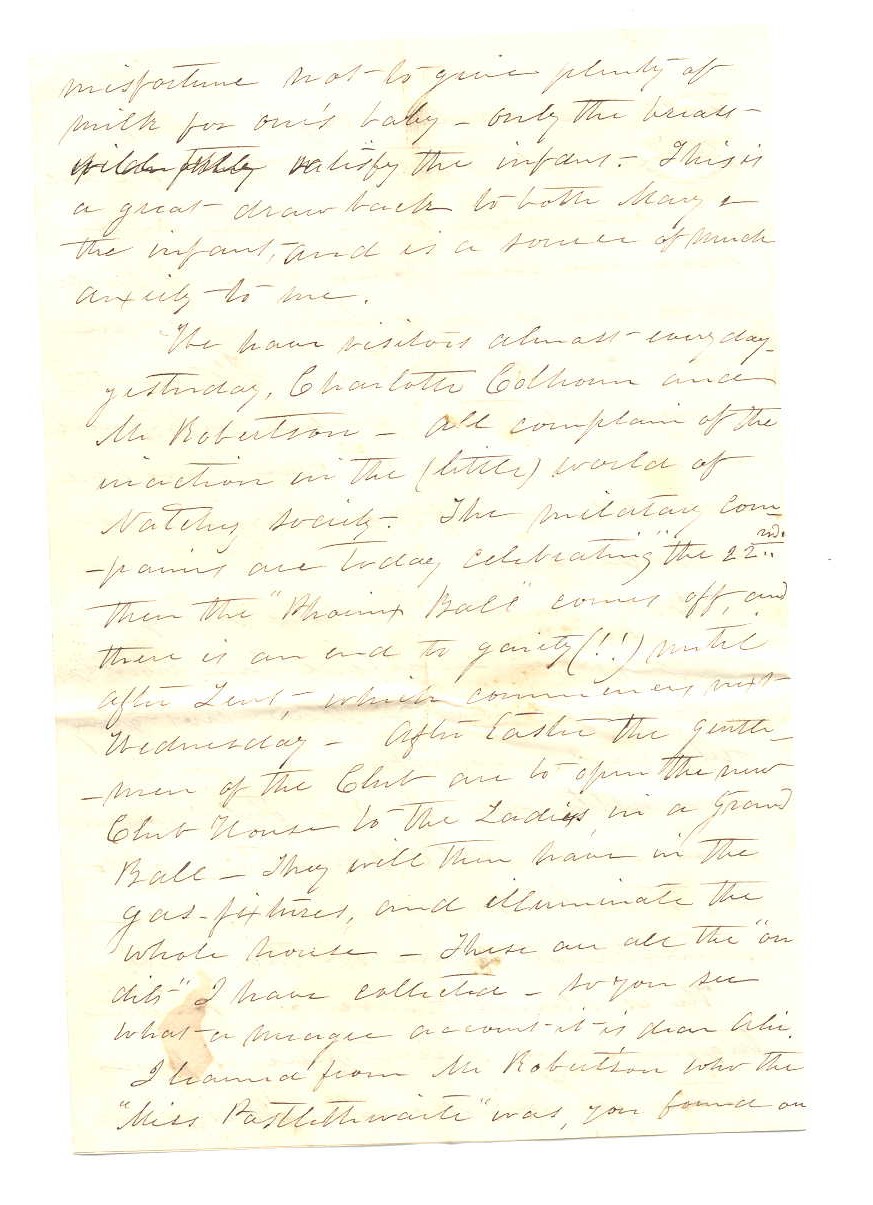 misfortune not to give plenty of
milk for one's baby - only the breast
will satisfy the infant - This is
a great draw back to both Mary &
the infant, and is a source of much
anxiety to me.
We have visitors almost every day -
yesterday, Charlotte Colhoun and
Mr Robertson - all complain of the
inaction in the (little) world of
Natchez society - The military com
-panies are today celebrating "the 22nd.
then the "Phoenix Ball" comes off, and
there is an end to gaiety (!!) until
after Lent, - which commences next
Wednesday - After Easter the gentle-
-men of the Club are to open the new
Club House to the Ladies in a Grand
Ball - They will then have in the
gas-fixtures, and illuminate the
whole house - These are all the "on
dits" I have collected - so you see
what a meagre account it is dear Alie.
I learned from Mr Robertson who the
"Miss Postlethwaite" was, you found on